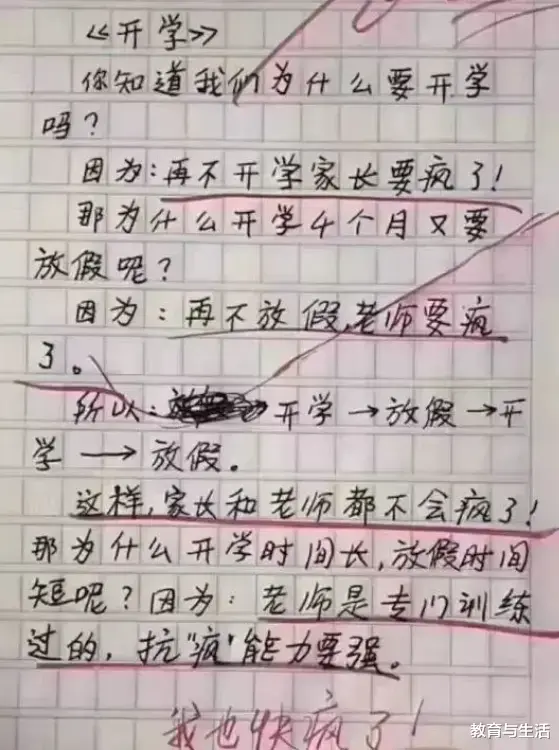 《开学》
你知道我们为什么要开学
吗？
因为：再不开学家长要疯了！
那为什么开学4个月又要
放假呢？
因为：再不放假，老师要疯
了。
所以：开学→放假→开
学→放假。
这样，家长和老师都不会疯了！
那为什么开学时间长，放假时间
短呢？因为：老师是专门训练
过的，抗"疯"能力要强。
我也快疯了！
教育与生活